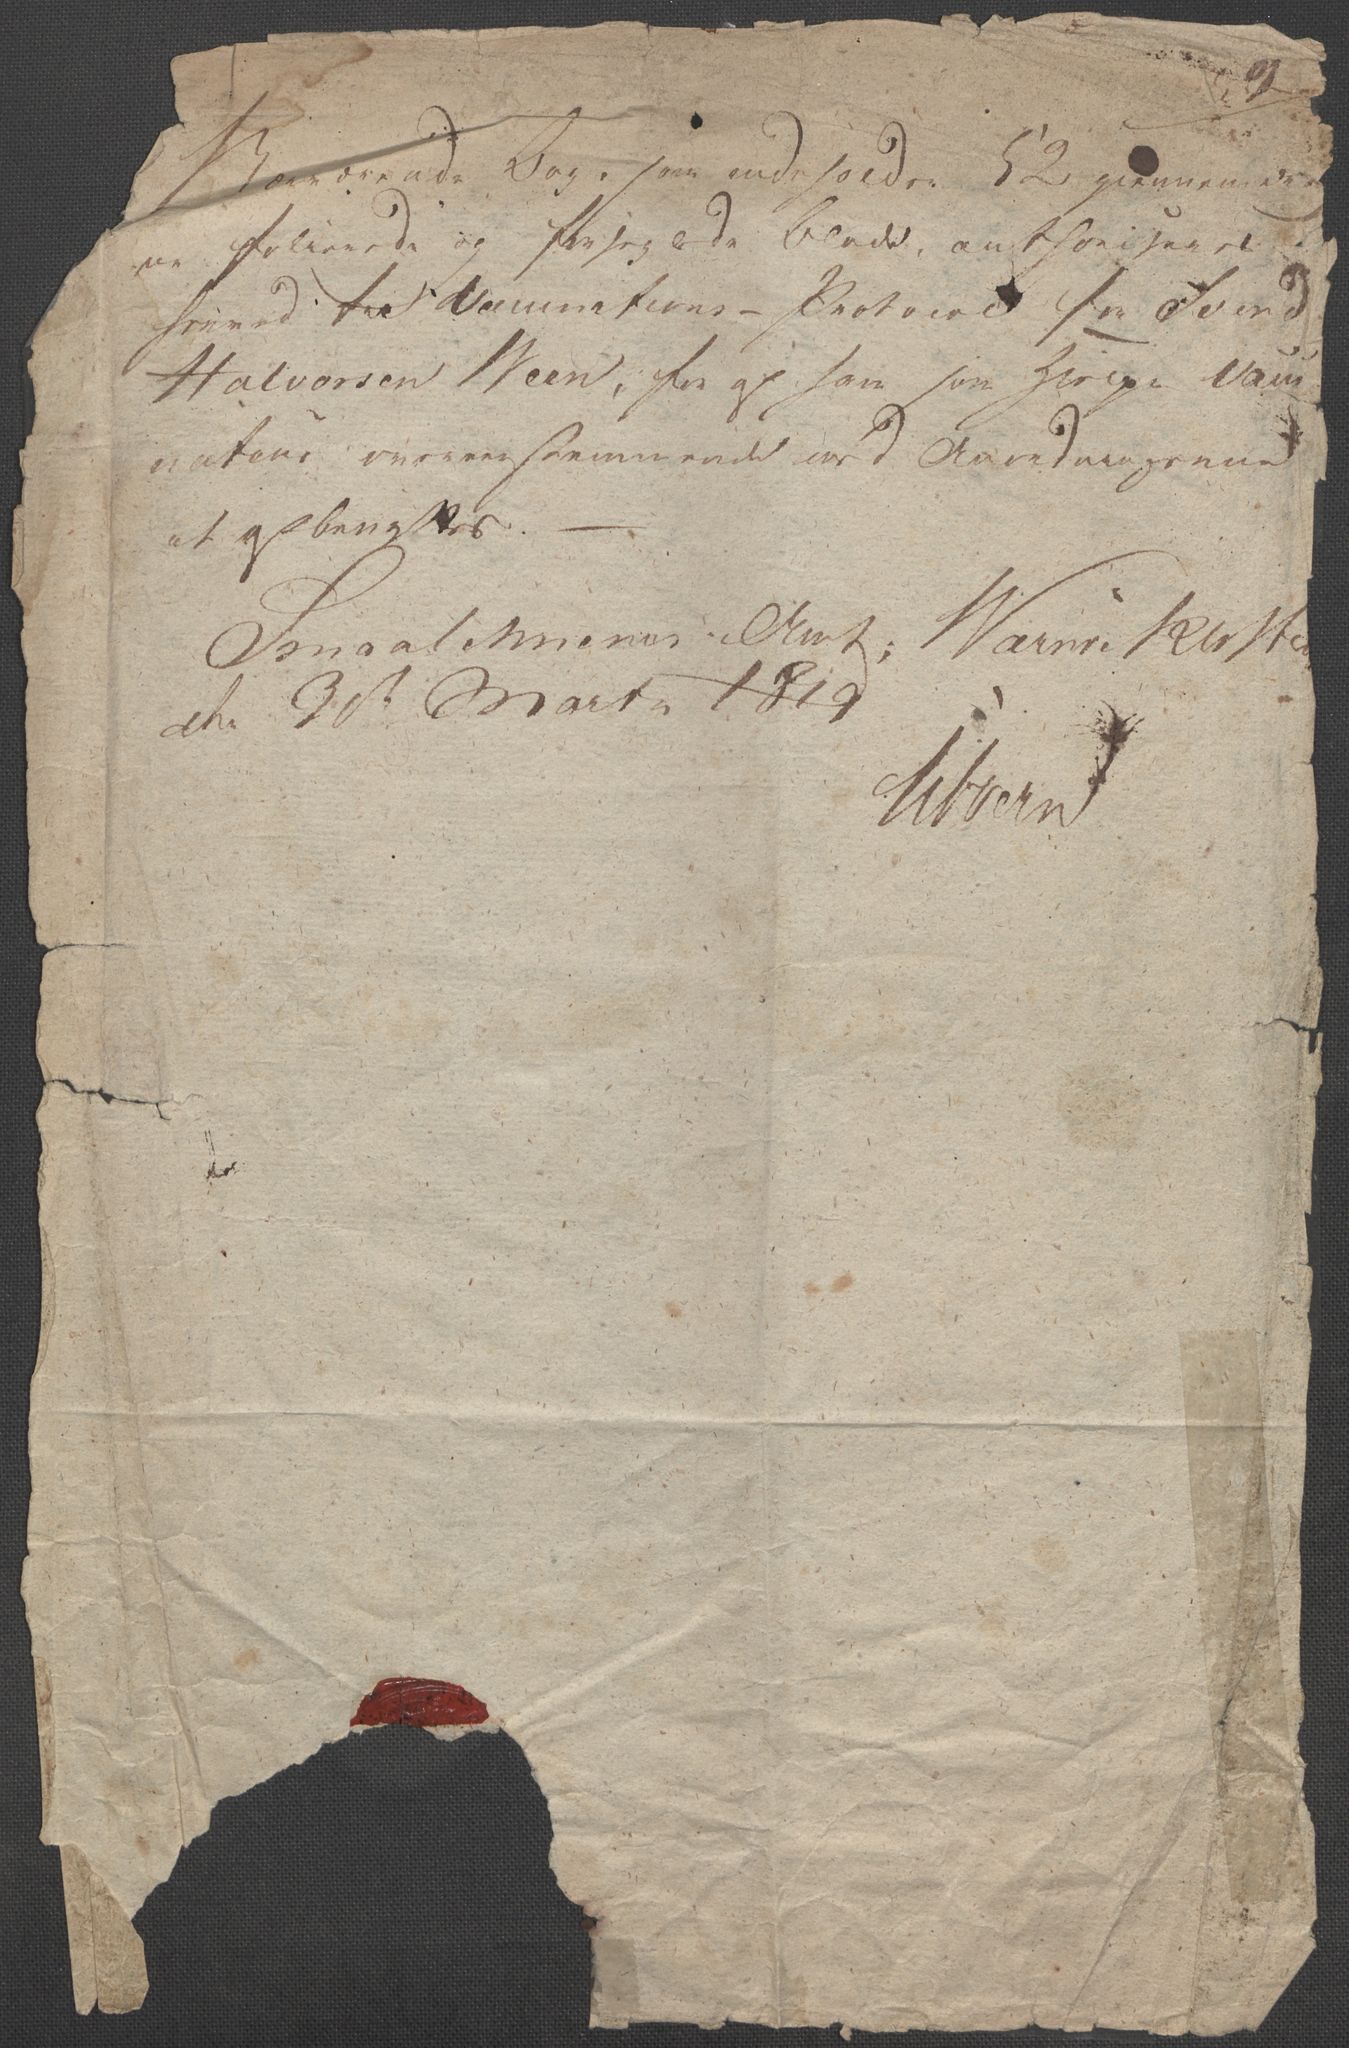 Nærværende Bog, som indeholder 52 giennemdragne
folierede og forseglede Blade, authoriseres
herved til Vaccinations-Protocol for Svend
Halvorsen Ween, for af ham som Hielpe Vacci-
nateur overeensstemmende med Anordningerne
at afbenyttes. —
Smaalehnenes Amt, Værne Kloster
den 30te Marts 1819
Sibbern